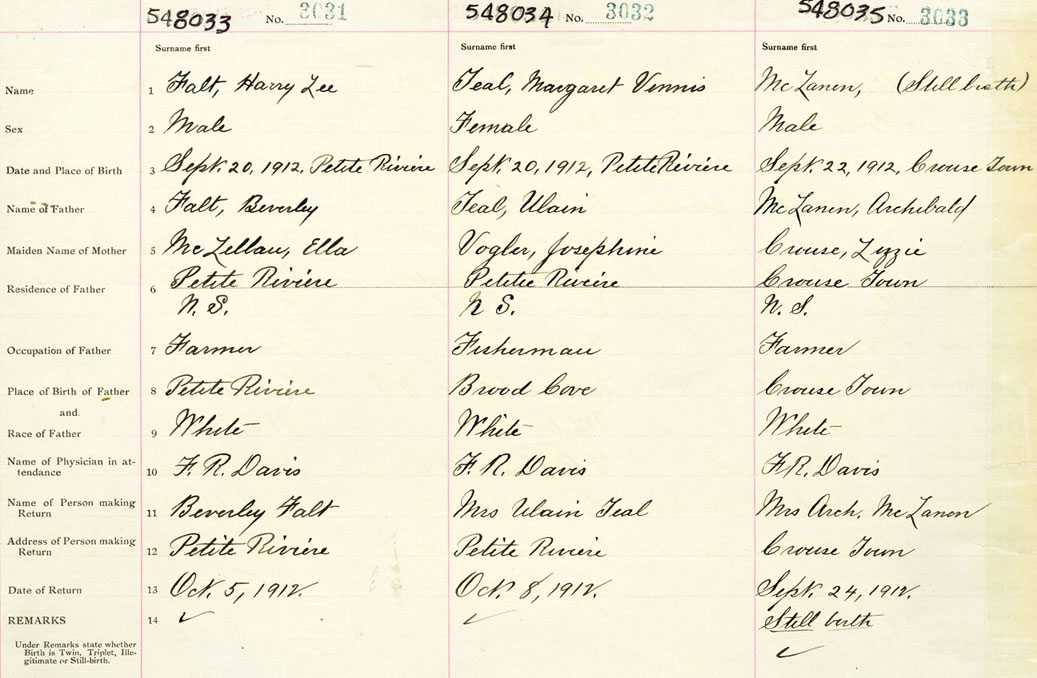 548033 No. 3031 548034 No. 3032 548035 No. 3033
Surname first Surname first Surname first
Name 1 Falt, Harry Lee Teal, Margaret Vennis McLanen, (Still birth)
Sex 2 Male Female Male
Date and Place of Birth 3 Sept. 20, 1912, Petite Rivière Sept. 20, 1912, Petite Rivière Sept. 22, 1912, Crouse Town
Name of Father 4 Falt, Beverley Teal, Ulain McLanen, Archibald
Maiden Name of Mother 5 McLellan, Ella Vogler, Josephine Crouse, Lizzie
Residence of Father 6 Petite Rivière Petite Rivière Crouse Town
N. S. N S. N. S.
Occupation of Father 7 Farmer Fisherman Farmer
Place of Birth of Father 8 Petite Rivière Brood Cove Crouse Town
and.
Race of Father 9 White White White
Name of Physician in at-
tendance 10 F. R. Davis F. R. Davis F. R. Davis
Name of Person making
Return 11 Beverley Falt Mrs Ulain Teal Mrs Arch. McLanen
Address of Person making
Return 12 Petite Rivière Petite Rivière Crouse Town
Date of Return 13 Oct. 5, 1912. Oct. 8, 1912. Sept. 24, 1912.
REMARKS 14 Still birth
Under Remarks state whether
Birth is Twin, Triplet, Ille-
gitimate or Still-birth.